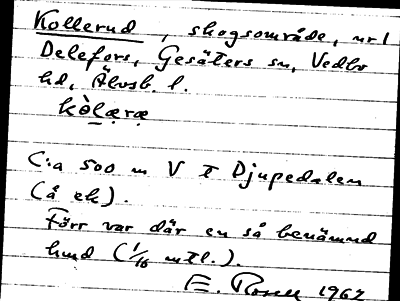 Kollerud, skogsområde, nr 1
Delefors, Gesäters sn, Vedbo
hd, Älvsb. l.
kòlæræ
C:a 500 m V Djupedalen
(å ek).
Förr var där en så benämnd
lund (1/16 mtl.).
E. 1967